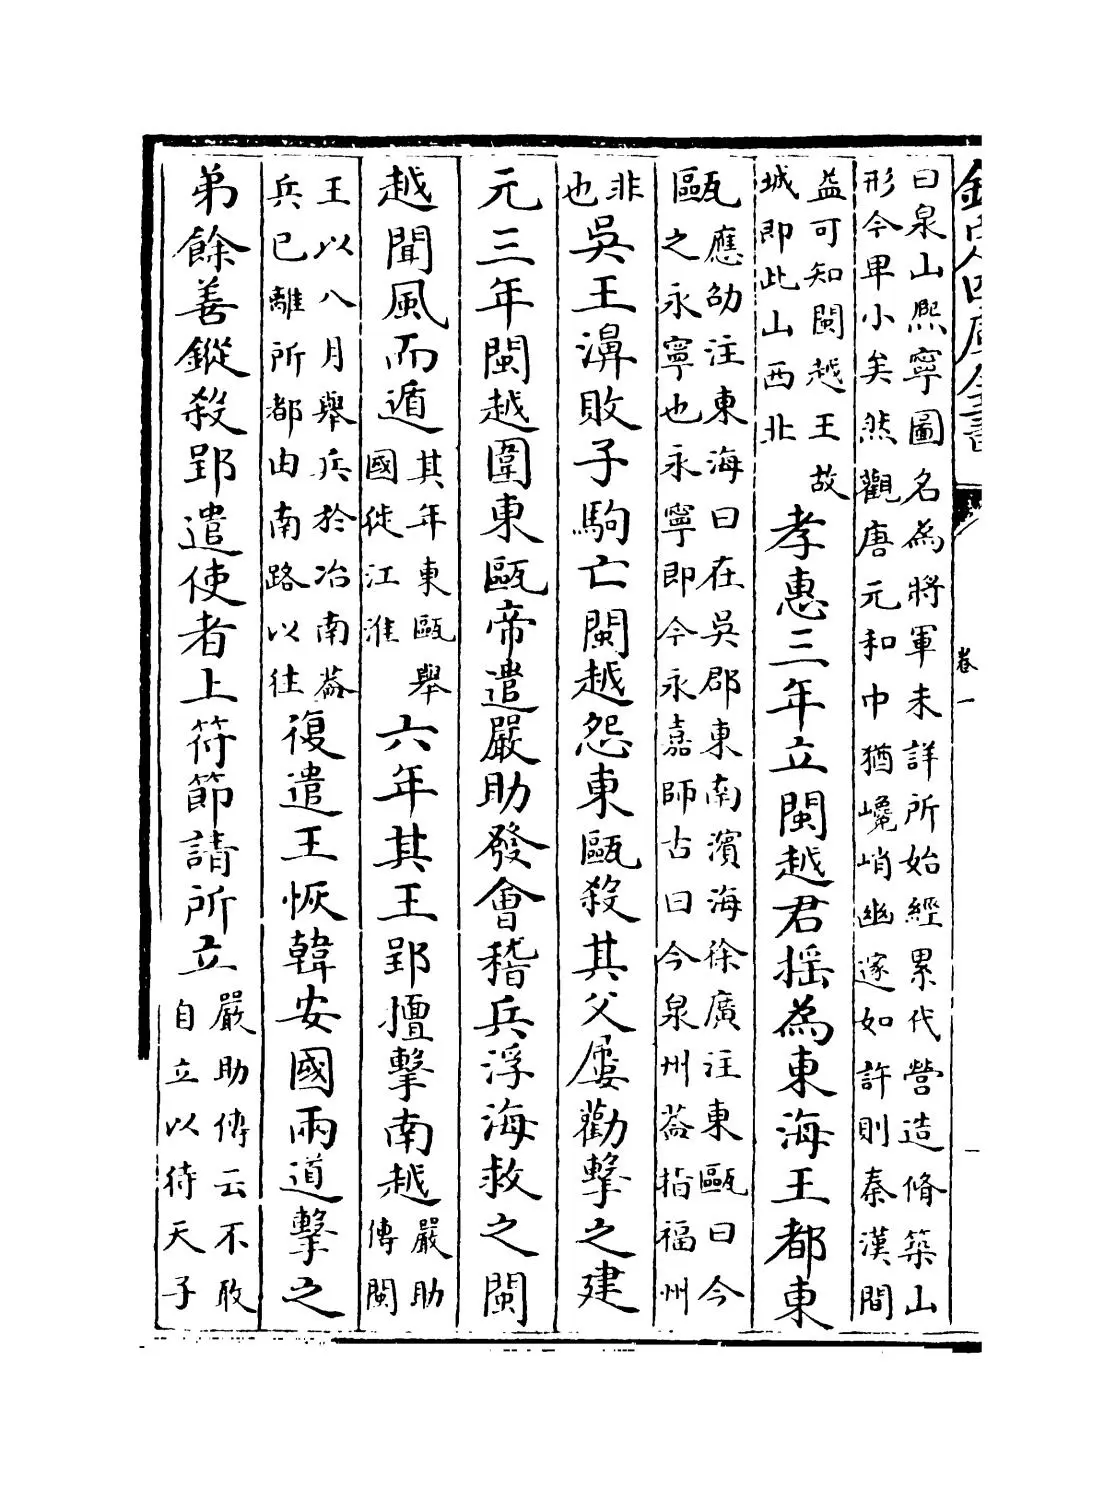 欽定四庫全書
卷一
一
曰泉山熙寧圖名為將軍未詳所始經累代營造脩築山
形今卑小矣然觀唐元和中猶巉峭幽邃如許則秦漢間
益可知閩越王故
城即此山西北
孝惠三年立閩越君搖為東海王都東
甌
應劭注東海曰在吳郡東南濱海徐廣注東甌曰今
之永寧也永寧即今永嘉師古曰今泉州葢指福州
非
也
吳王濞敗子駒亡閩越怨東甌殺其父屢勸擊之建
元三年閩越圍東甌帝遣嚴助發會稽兵浮海救之閩
越聞風而遁
其年東甌舉
國徙江淮
六年其王郢擅擊南越
嚴助
傳閩
王以八月舉兵於冶南葢
兵已離所都由南路以往
復遣王恢韓安國兩道擊之
弟餘善鏦殺郢遣使者上符節請所立
嚴助傳云不敢
自立以待天子